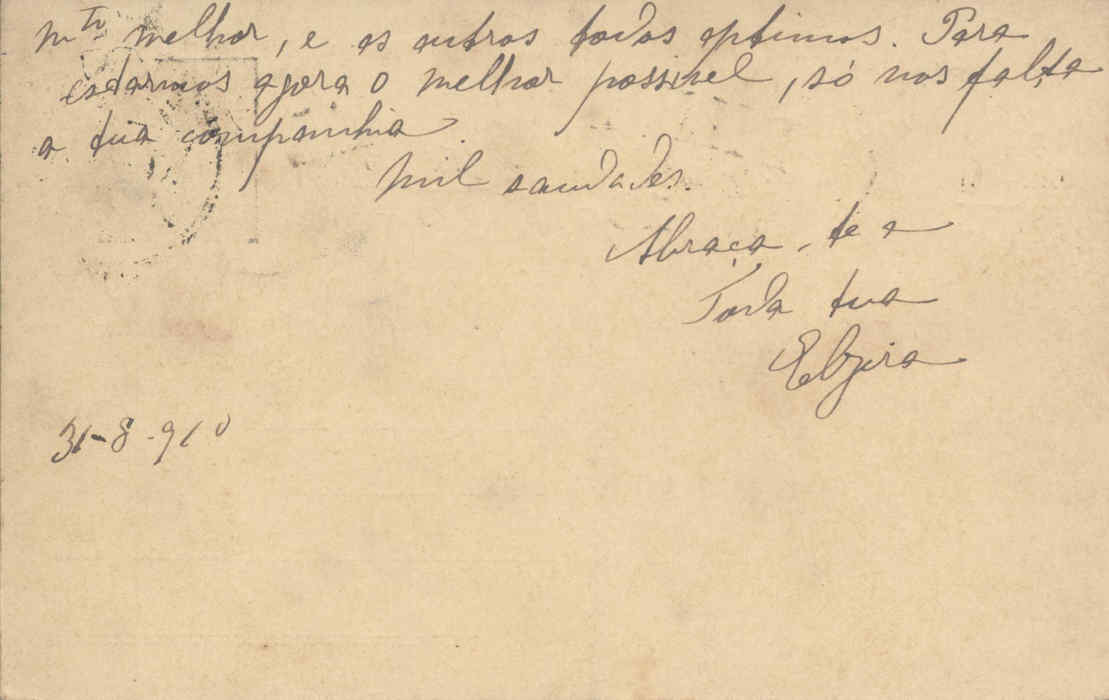 mto melhor, e os outros todos optimos. Para
estarmos agora o melhor possivel, só nos falta
a tua companhia.
Mil saudades.
Abraça-te a
Toda tua
Elzira
31-8-910